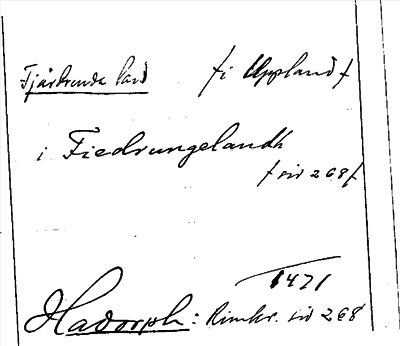 Fjädrunda land /i Uppland/
i Fiedrungelandh
/sid 268/
1471
Hadorph: Rimkr. sid 268